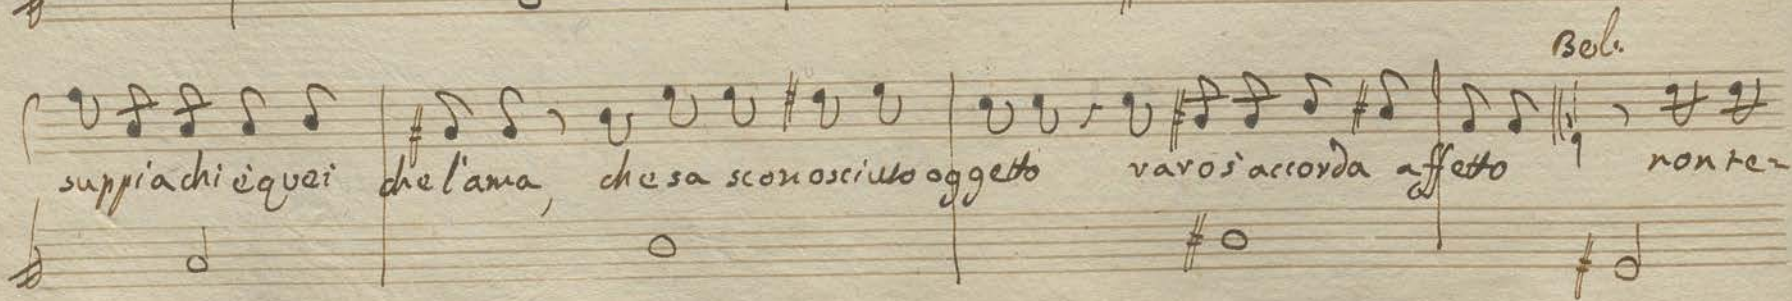 Bel.
suppia chi è quei che l'ama, che sa sconosciuto oggetto raro s'accorda affetto non te-